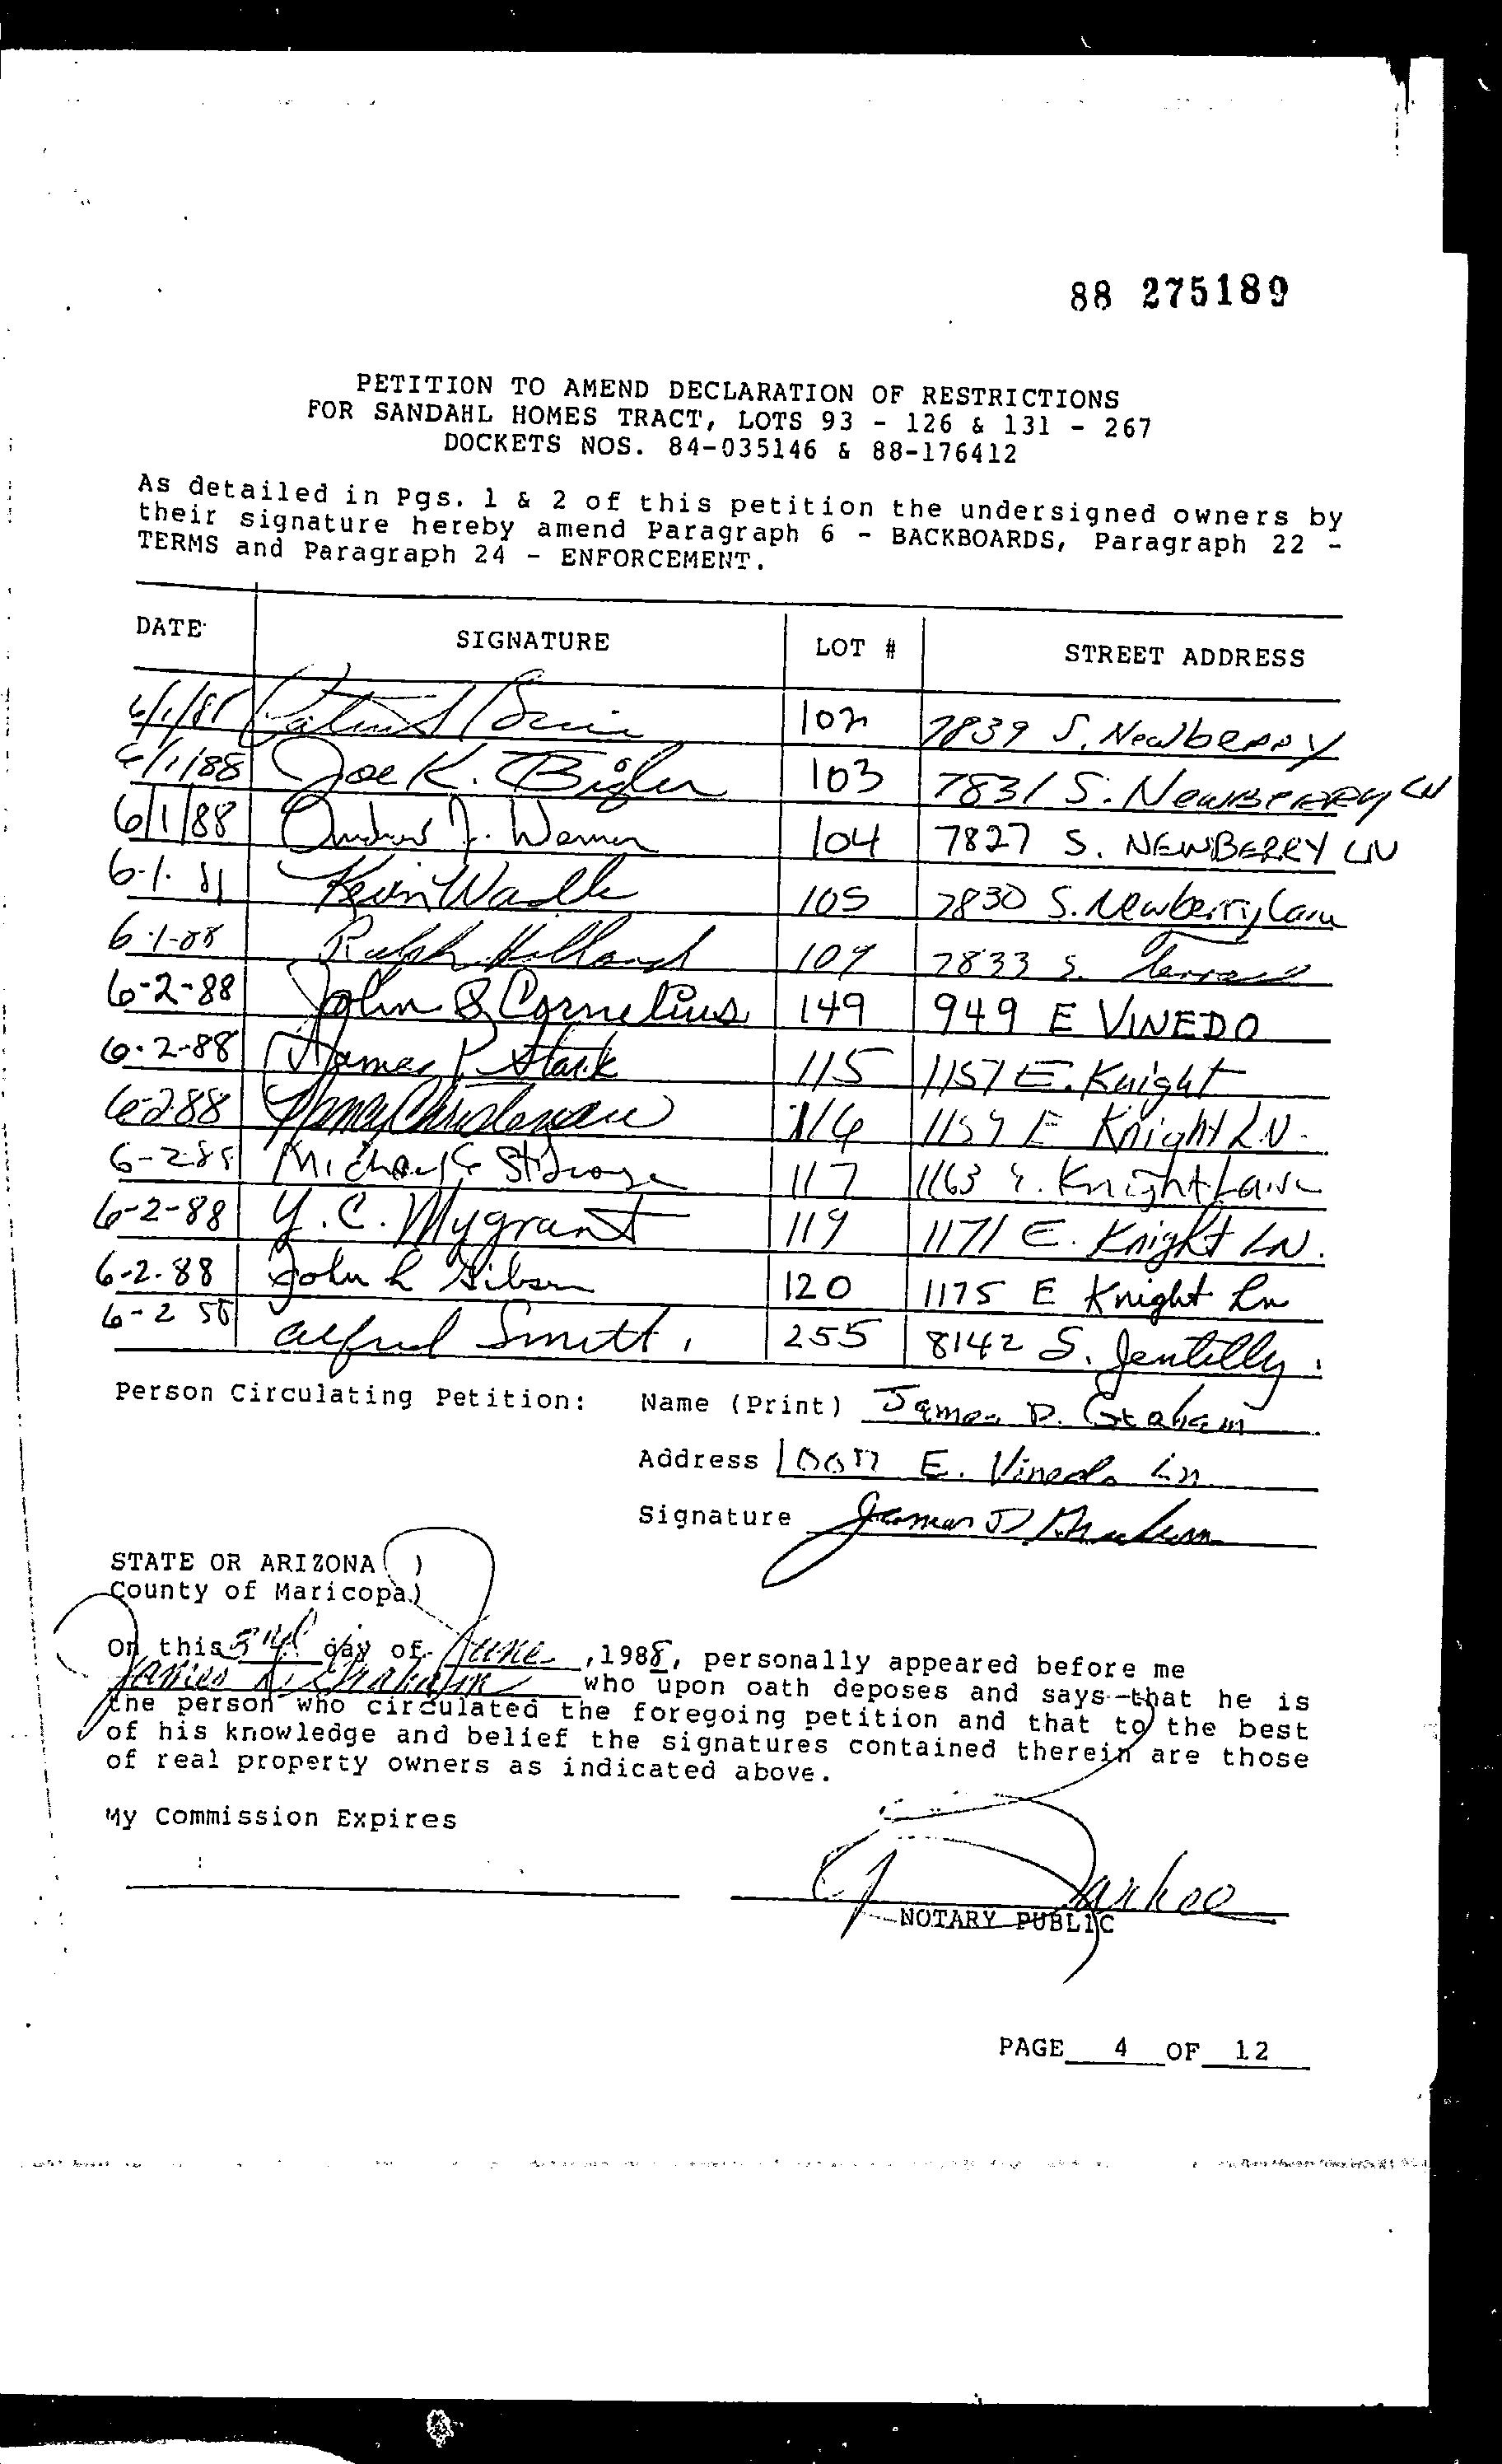 88 275189
PETITION TO AMEND DECLARATION OF RESTRICTIONS
FOR SANDAHL HOMES TRACT, LOTS 93 - 126 & 131 - 267
DOCKETS NOS. 84-035146 & 88-176412
As detailed in Pgs. 1 & 2 of this petition the undersigned owners by
their signature hereby amend Paragraph 6 - BACKBOARDS, Paragraph 22 -
TERMS and Paragraph 24 - ENFORCEMENT.
DATE SIGNATURE LOT # STREET ADDRESS
6/1/88 102 7839 S. Newberry
6/1/88 Joe K. Bigler 103 7831 S. Newberry LN
6/1/88 J. Warner 104 7827 S. NEWBERRY LN
6-1- Kevin 105 7830 S. Newberry Lane
6-1-88 Ralph Holland 7833 S. Terrace
6-2-88 John Cornelius 149 949 E VINEDO
6-2-88 James P. Stark 115 1157 E. Knight
6-2-88 Nancy 116 1159 E Knight LN.
6-2-88 117 1163 E. Knight Lane
6-2-88 Y.C. Mygrant 119 1171 E. Knight LN.
6-2-88 John L Gibson 120 1175 E Knight Ln
6-2 88 Alfred Smith 255 8142 S. Jentilly
Person Circulating Petition: Name (Print) James D. Graham
Address E. Vinedo Ln
Signature James D Graham
STATE OR ARIZONA )
County of Maricopa)
On this 3rd day of June, 1988, personally appeared before me
James D. Graham who upon oath deposes and says that he is
the person who circulated the foregoing petition and that to the best
of his knowledge and belief the signatures contained therein are those
of real property owners as indicated above.
My Commission Expires
NOTARY PUBLIC
PAGE 4 OF 12